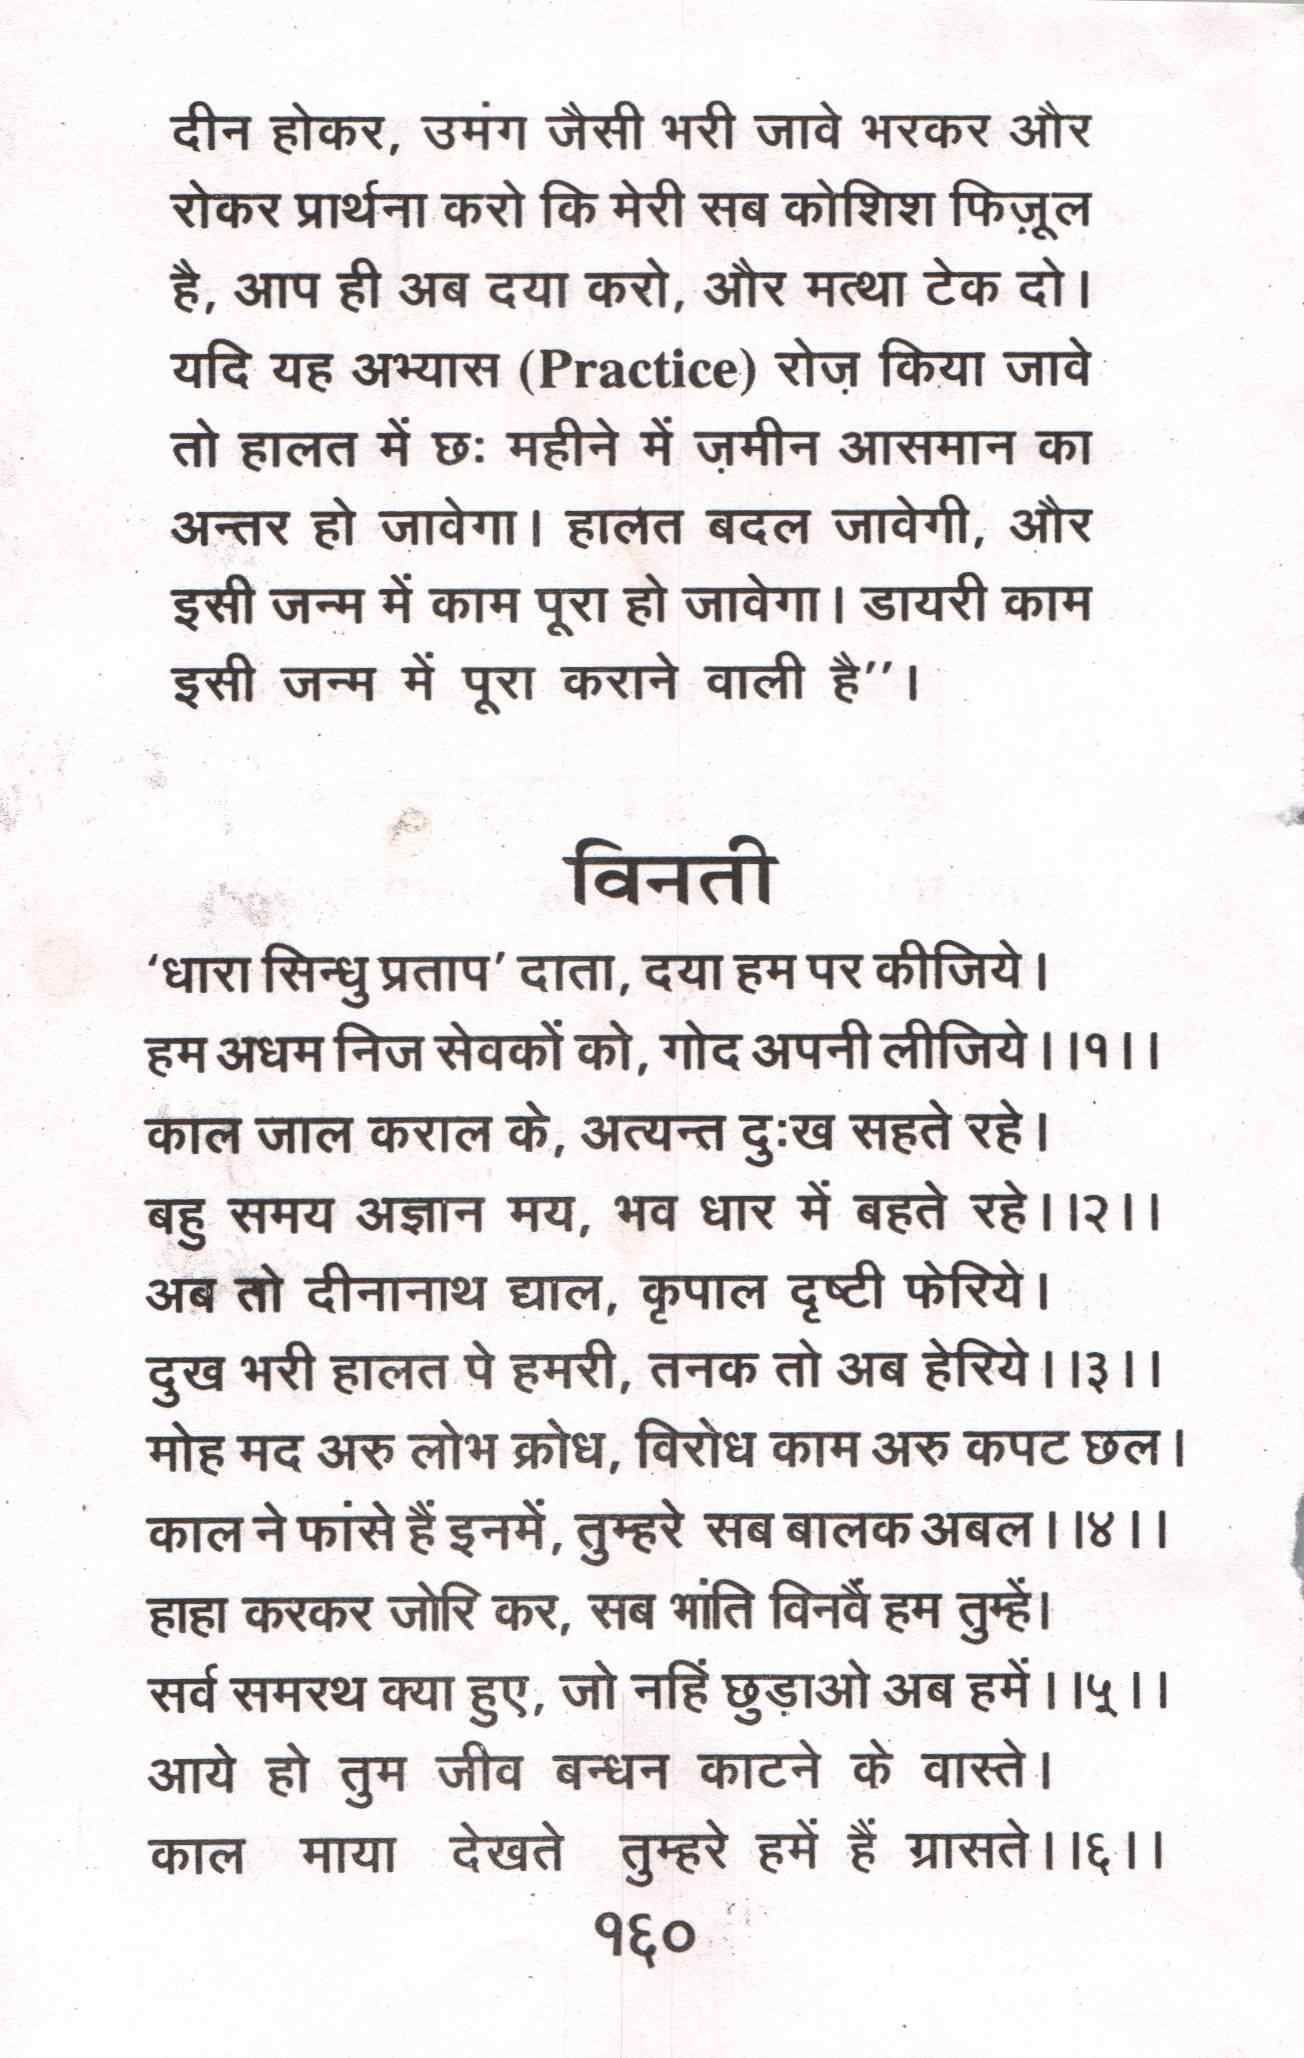 दीन होकर, उमंग जैसी भरी जावे भरकर और
रोकर प्रार्थना करो कि मेरी सब कोशिश फिज़ूल
है, आप ही अब दया करो, और मत्था टेक दो।
यदि यह अभ्यास (Practice) रोज़ किया जावे
तो हालत में छः महीने में ज़मीन आसमान का
अन्तर हो जावेगा। हालत बदल जावेगी, और
इसी जन्म में काम पूरा हो जावेगा। डायरी काम
इसी जन्म में पूरा कराने वाली है’’।
विनती
‘धारा सिन्धु प्रताप’ दाता, दया हम पर कीजिये।
हम अधम निज सेवकों को, गोद अपनी लीजिये।।१।।
काल जाल कराल के, अत्यन्त दुःख सहते रहे।
बहु समय अज्ञान मय, भव धार में बहते रहे।।२।।
अब तो दीनानाथ द्याल, कृपाल दृष्टी फेरिये।
दुख भरी हालत पे हमरी, तनक तो अब हेरिये।।३।।
मोह मद अरु लोभ क्रोध, विरोध काम अरु कपट छल।
काल ने फांसे हैं इनमें, तुम्हरे सब बालक अबल।।४।।
हाहा करकर जोरि कर, सब भांति विनवैं हम तुम्हें।
सर्व समरथ क्या हुए, जो नहिं छुड़ाओ अब हमें।।५।।
आये हो तुम जीव बन्धन काटने के वास्ते।
काल माया देखते तुम्हरे हमें हैं ग्रासते।।६।।
१६०